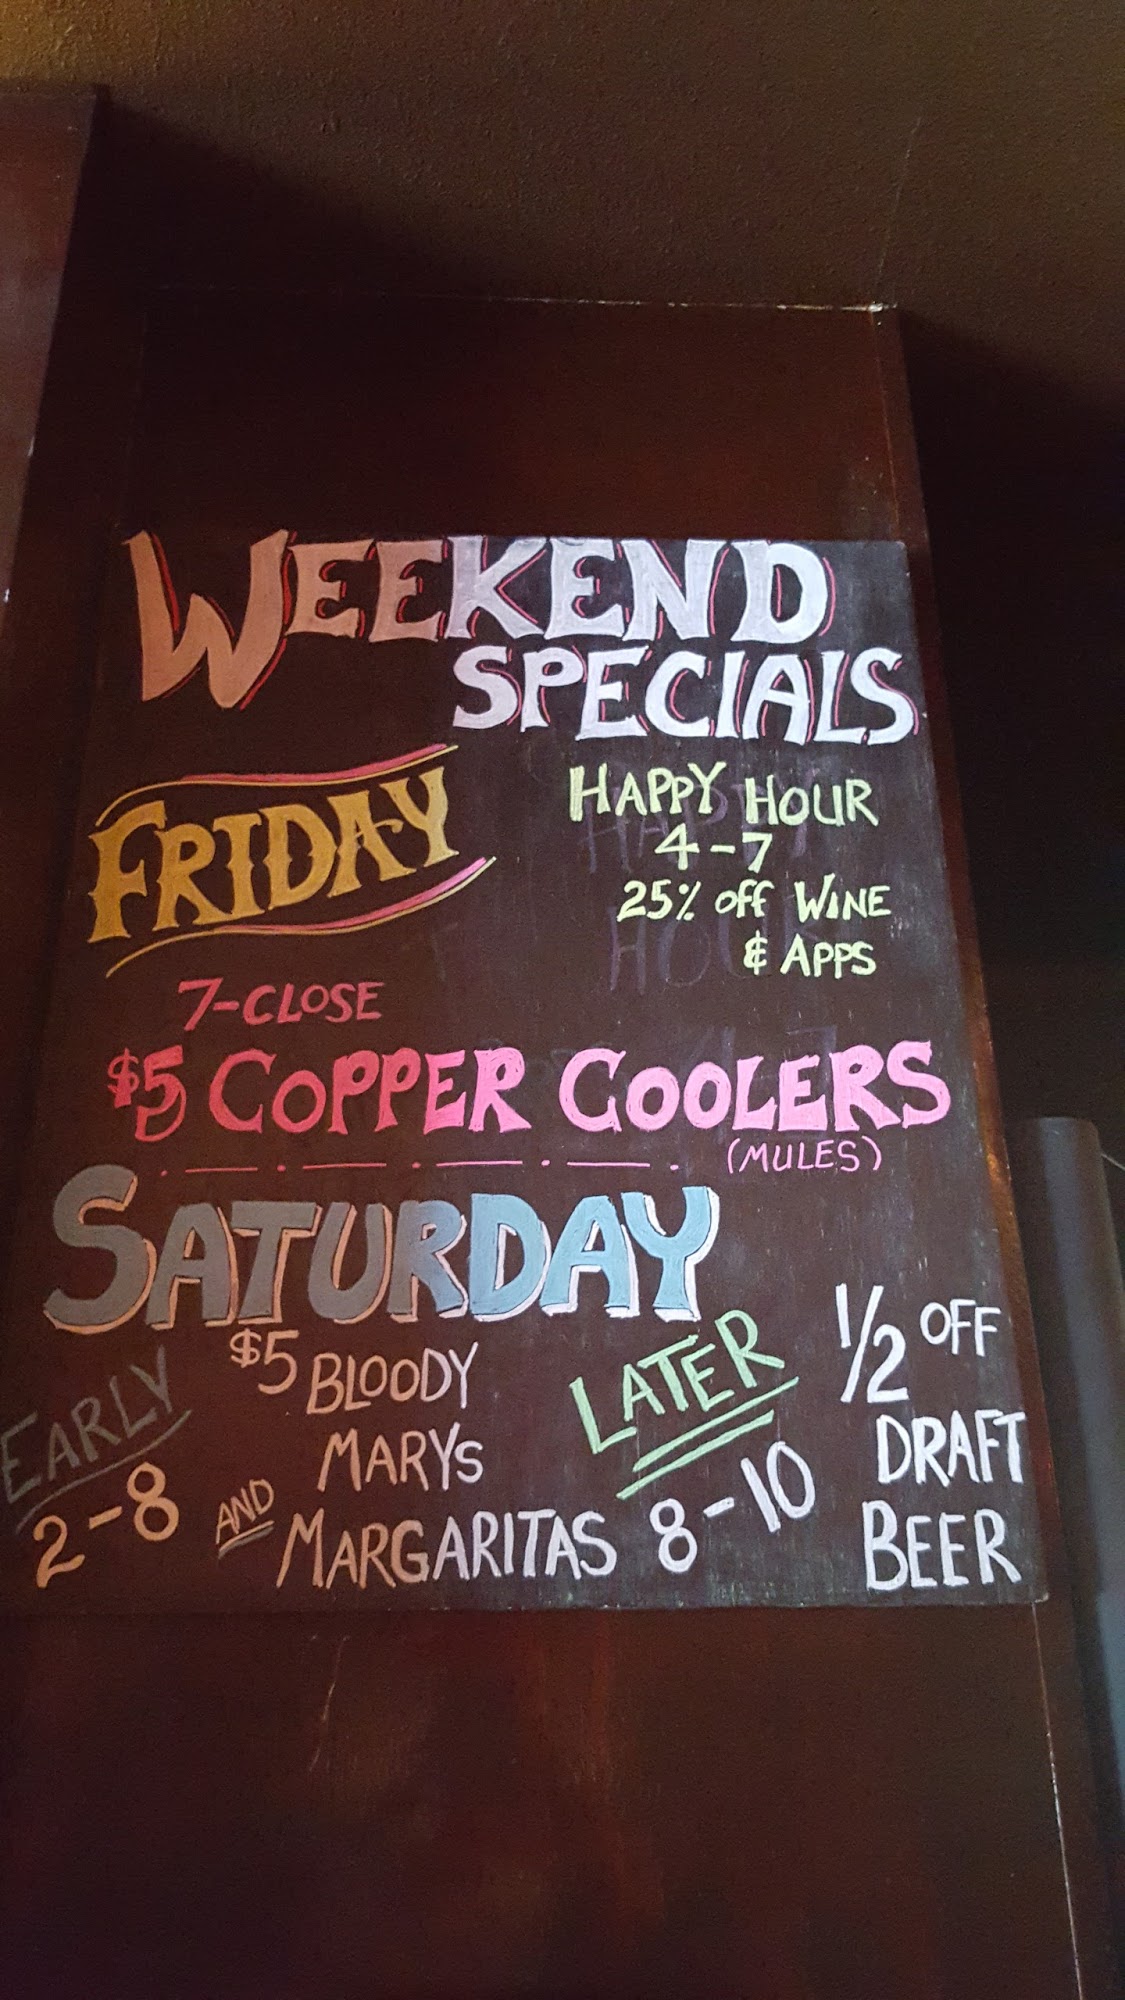 WEEKEND
SPECIALS
FRIDAY
HAPPY HOUR
4-7
25% OFF WINE
& APPS
7-CLOSE
$5 COPPER COOLERS
(MULES)
SATURDAY
EARLY
2-8
$5 BLOODY
MARYS
AND MARGARITAS
LATER
8-10
1/2 OFF
DRAFT
BEER